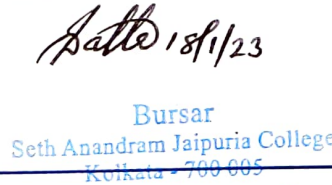 18/1/23
Bursar
Seth Anandram Jaipuria College
Kolkata - 700 005